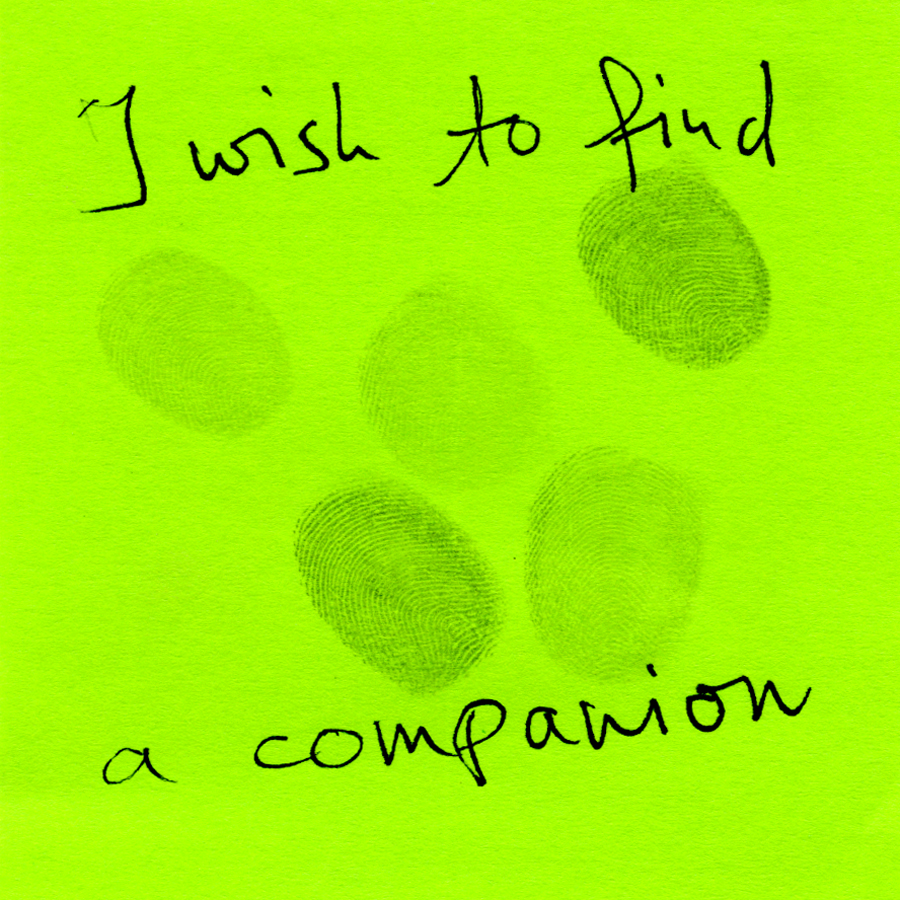 I wish to find
a companion